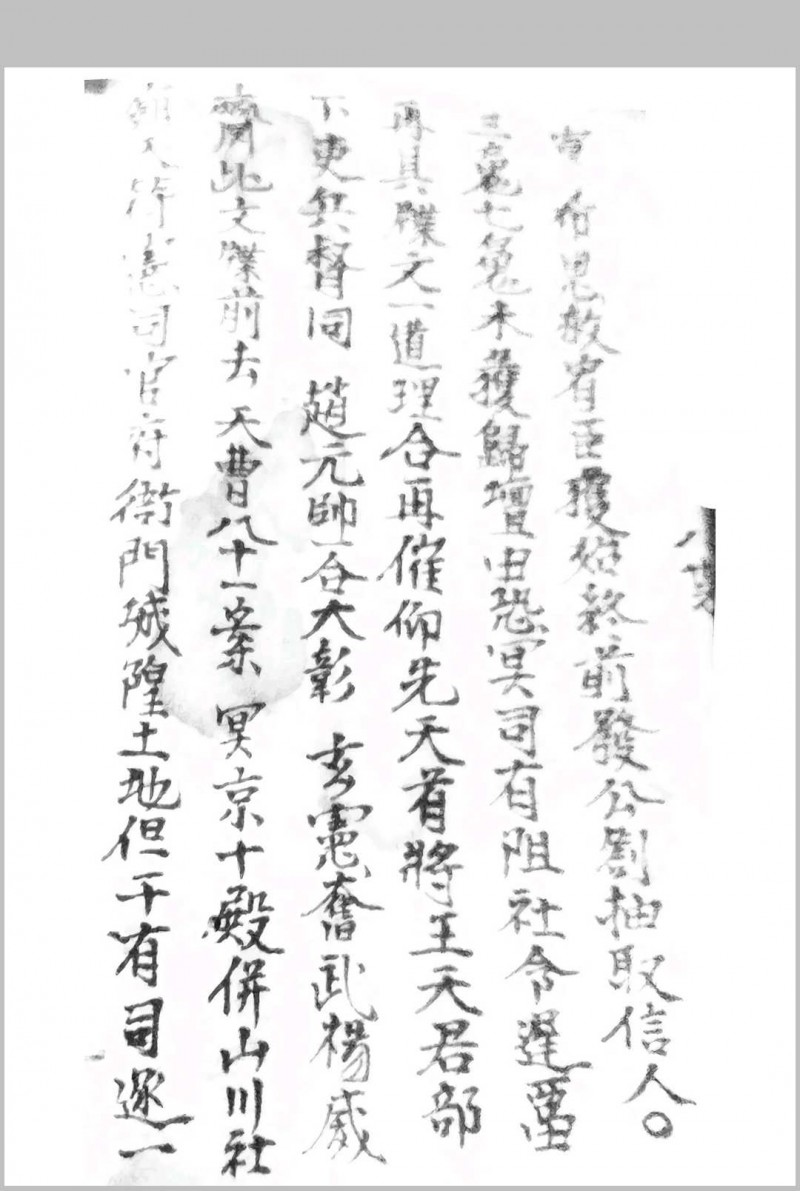 恩赦宥臣獲始終前發公劄抽取信人〇
三魂七魄未獲歸壇由恐冥司有阻社令遲留
再具牒文一道理合再催仰先天首將王天君部
下吏兵督同 趙元帥合大彰 玄憲奮武楊威
齎此文牒前去 天曹八十一案 冥京十殿併山川社
廟 符憲司官府衙門城隍土地但干有司逐一